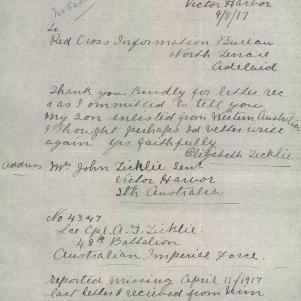 Victor Harbor
9/8/17
To
Red Cross Information Bureau
North Terrace
Adelaid
Thank you kindly for letter rec
& as I ommitted to tell you
my son enlisted from Western Australia
I thought perhaps Id better write
again Yrs faithfully
Elizabeth Ticklie
Address Mrs John Ticklie Senr
Victor Harbor
Sth Australia
No 4347
Lce Cpl. A. J. Ticklie.
48th Battalion
Australian Imperial Force.
reported missing April 11/1917
last letter I recieved from him